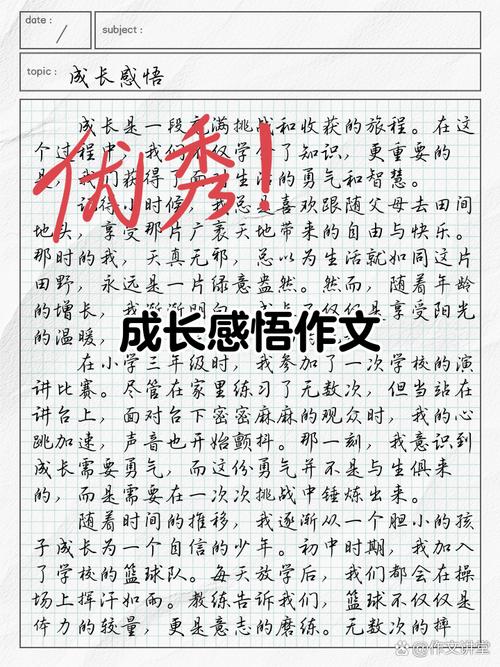 date:
subject:
topic: 成长感悟
成长是一段充满挑战和收获的旅程。在这
个过程中,我们不仅学会了知识,更重要的
是,我们获得了面对生活的勇气和智慧。
优秀!
记得小时候,我总是喜欢跟随父母去田间
地头,享受那片广袤天地带来的自由与快乐。
那时的我,天真无邪,总以为生活就如同这片
田野,永远是一片绿意盎然。然而,随着年龄
的增长,我渐渐明白,成长不仅仅是享受阳光
的温暖,
成长感悟作文
在小学三年级时,我参加了一次学校的演
讲比赛。尽管在家里练习了无数次,但当站在
讲台上,面对台下密密麻麻的观众时,我的心
跳加速,声音也开始颤抖。那一刻,我意识到
成长需要勇气,而这份勇气并不是与生俱来
的,而是需要在一次次挑战中锤炼出来。
随着时间的推移,我逐渐从一个胆小的孩
子成长为一个自信的少年。初中时期,我加入
了学校的篮球队。每天放学后,我们都会在操
场上挥汗如雨。教练告诉我们,篮球不仅仅是
体力的较量,更是意志的磨练。无数次的摔
作文讲堂